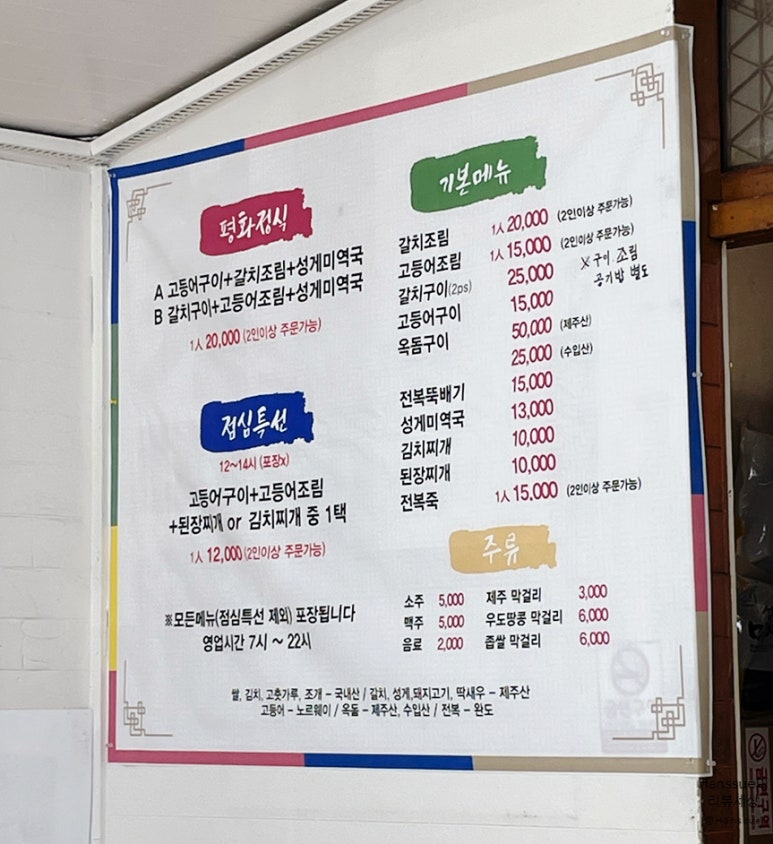 평화정식
A 고등어구이+갈치조림+성게미역국
B 갈치구이+고등어조림+성게미역국
1人 20,000 (2인이상 주문가능)
점심특선
12~14시 (포장x)
고등어구이+고등어조림
+된장찌개 or 김치찌개 중 1택
1人 12,000 (2인이상 주문가능)
※모든메뉴(점심특선 제외) 포장됩니다
영업시간 7시 ~ 22시
기본메뉴
갈치조림 1人 20,000 (2인이상 주문가능)
고등어조림 1人 15,000 (2인이상 주문가능)
갈치구이(2ps) 25,000
고등어구이 15,000
옥돔구이 50,000 (제주산)
25,000 (수입산)
X 구이, 조림
공기밥 별도
전복뚝배기 15,000
성게미역국 13,000
김치찌개 10,000
된장찌개 10,000
전복죽 1人 15,000 (2인이상 주문가능)
주류
소주 5,000 제주 막걸리 3,000
맥주 5,000 우도땅콩 막걸리 6,000
음료 2,000 좁쌀 막걸리 6,000
쌀, 김치, 고춧가루, 조개 – 국내산 / 갈치, 성게,돼지고기, 딱새우 – 제주산
고등어 – 노르웨이 / 옥돔 – 제주산, 수입산 / 전복 – 완도
금연구역
리뷰세상